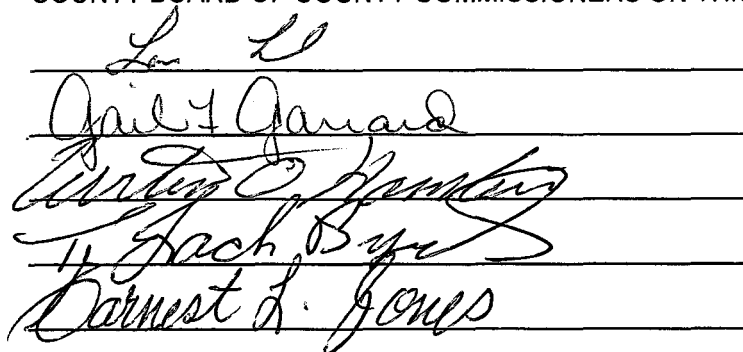 COUNTY BOARD OF COUNTY COMMISSIONERS ON THI
Gail F Garrard
Curtis O.
T. Zach Byrd
Earnest L. Jones